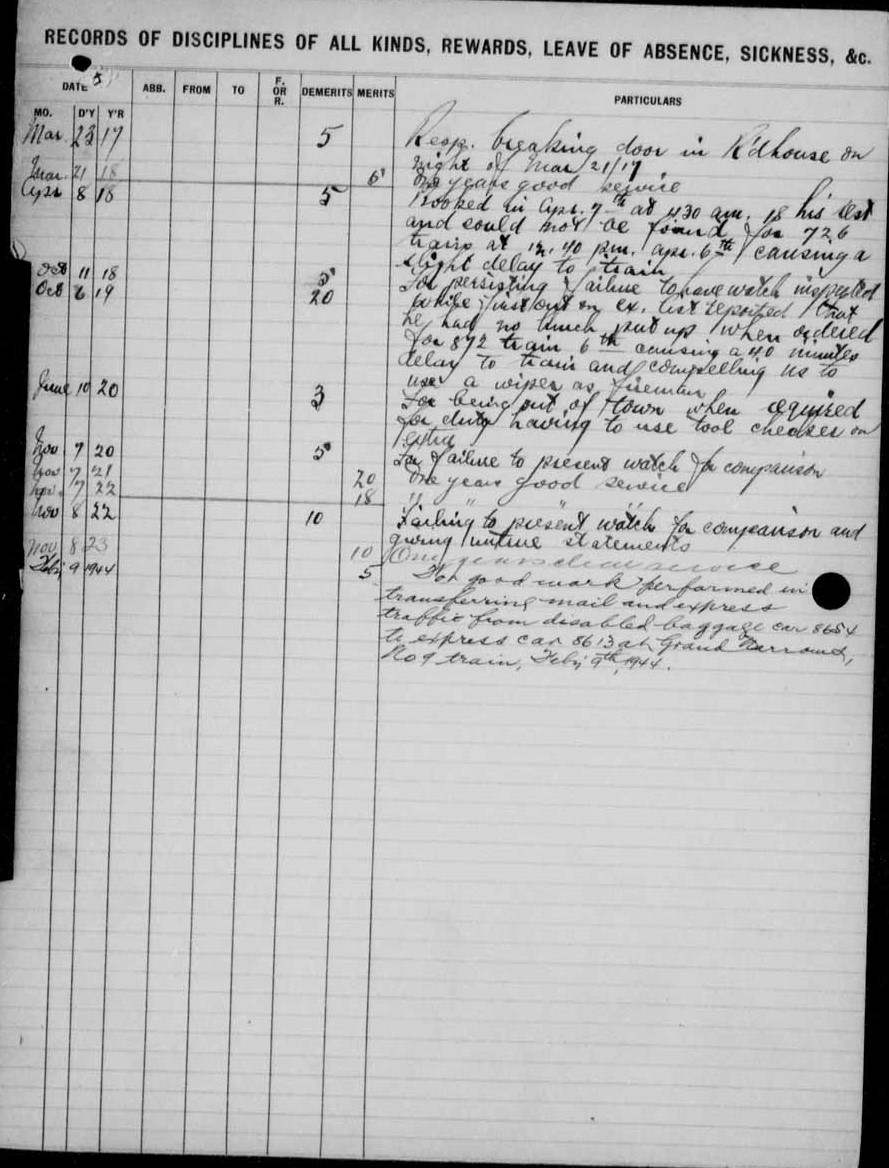 RECORDS OF DISCIPLINES OF ALL KINDS, REWARDS, LEAVE OF ABSENCE, SICKNESS, &c.
DATE ABB. FROM TO F. OR R. DEMERITS MERITS PARTICULARS
MO. D'Y Y'R
Mar. 23 17 5 Resp. breaking door in R'dhouse on
night of Mar 21/17
Mar. 21 18 5 One years good service
Apr 8 18 5 Booked in Apr. 7th at 430 am. 18 hrs rest
and could not be found for 726
train at 12.40 pm. Apr. 6th causing a
slight delay to train
Oct 11 18 5 For persisting failure to have watch inspected
Oct 6 19 20 while first out on ex. list reported that
he had no lunch put up when ordered
for 872 train 6th causing a 40 minutes
delay to train and compelling us to
use a wiper as fireman
June 10 20 3 For being out of town when required
for duty having to use tool checker on
extra
Nov 7 20 5 For failure to present watch for comparison
Nov 7 21 20 One years good service
Nov. 7 22 18 " " " "
Nov 8 22 10 Failing to present watch for comparison and
giving untrue statements
Nov 8 23 10 One years clear service
Feby 9 1944 5 For good work performed in
transferring mail and express
traffic from disabled baggage car 8654
to express car 8613 at Grand Narrows,
No 9 train, Feby 9th, 1944.